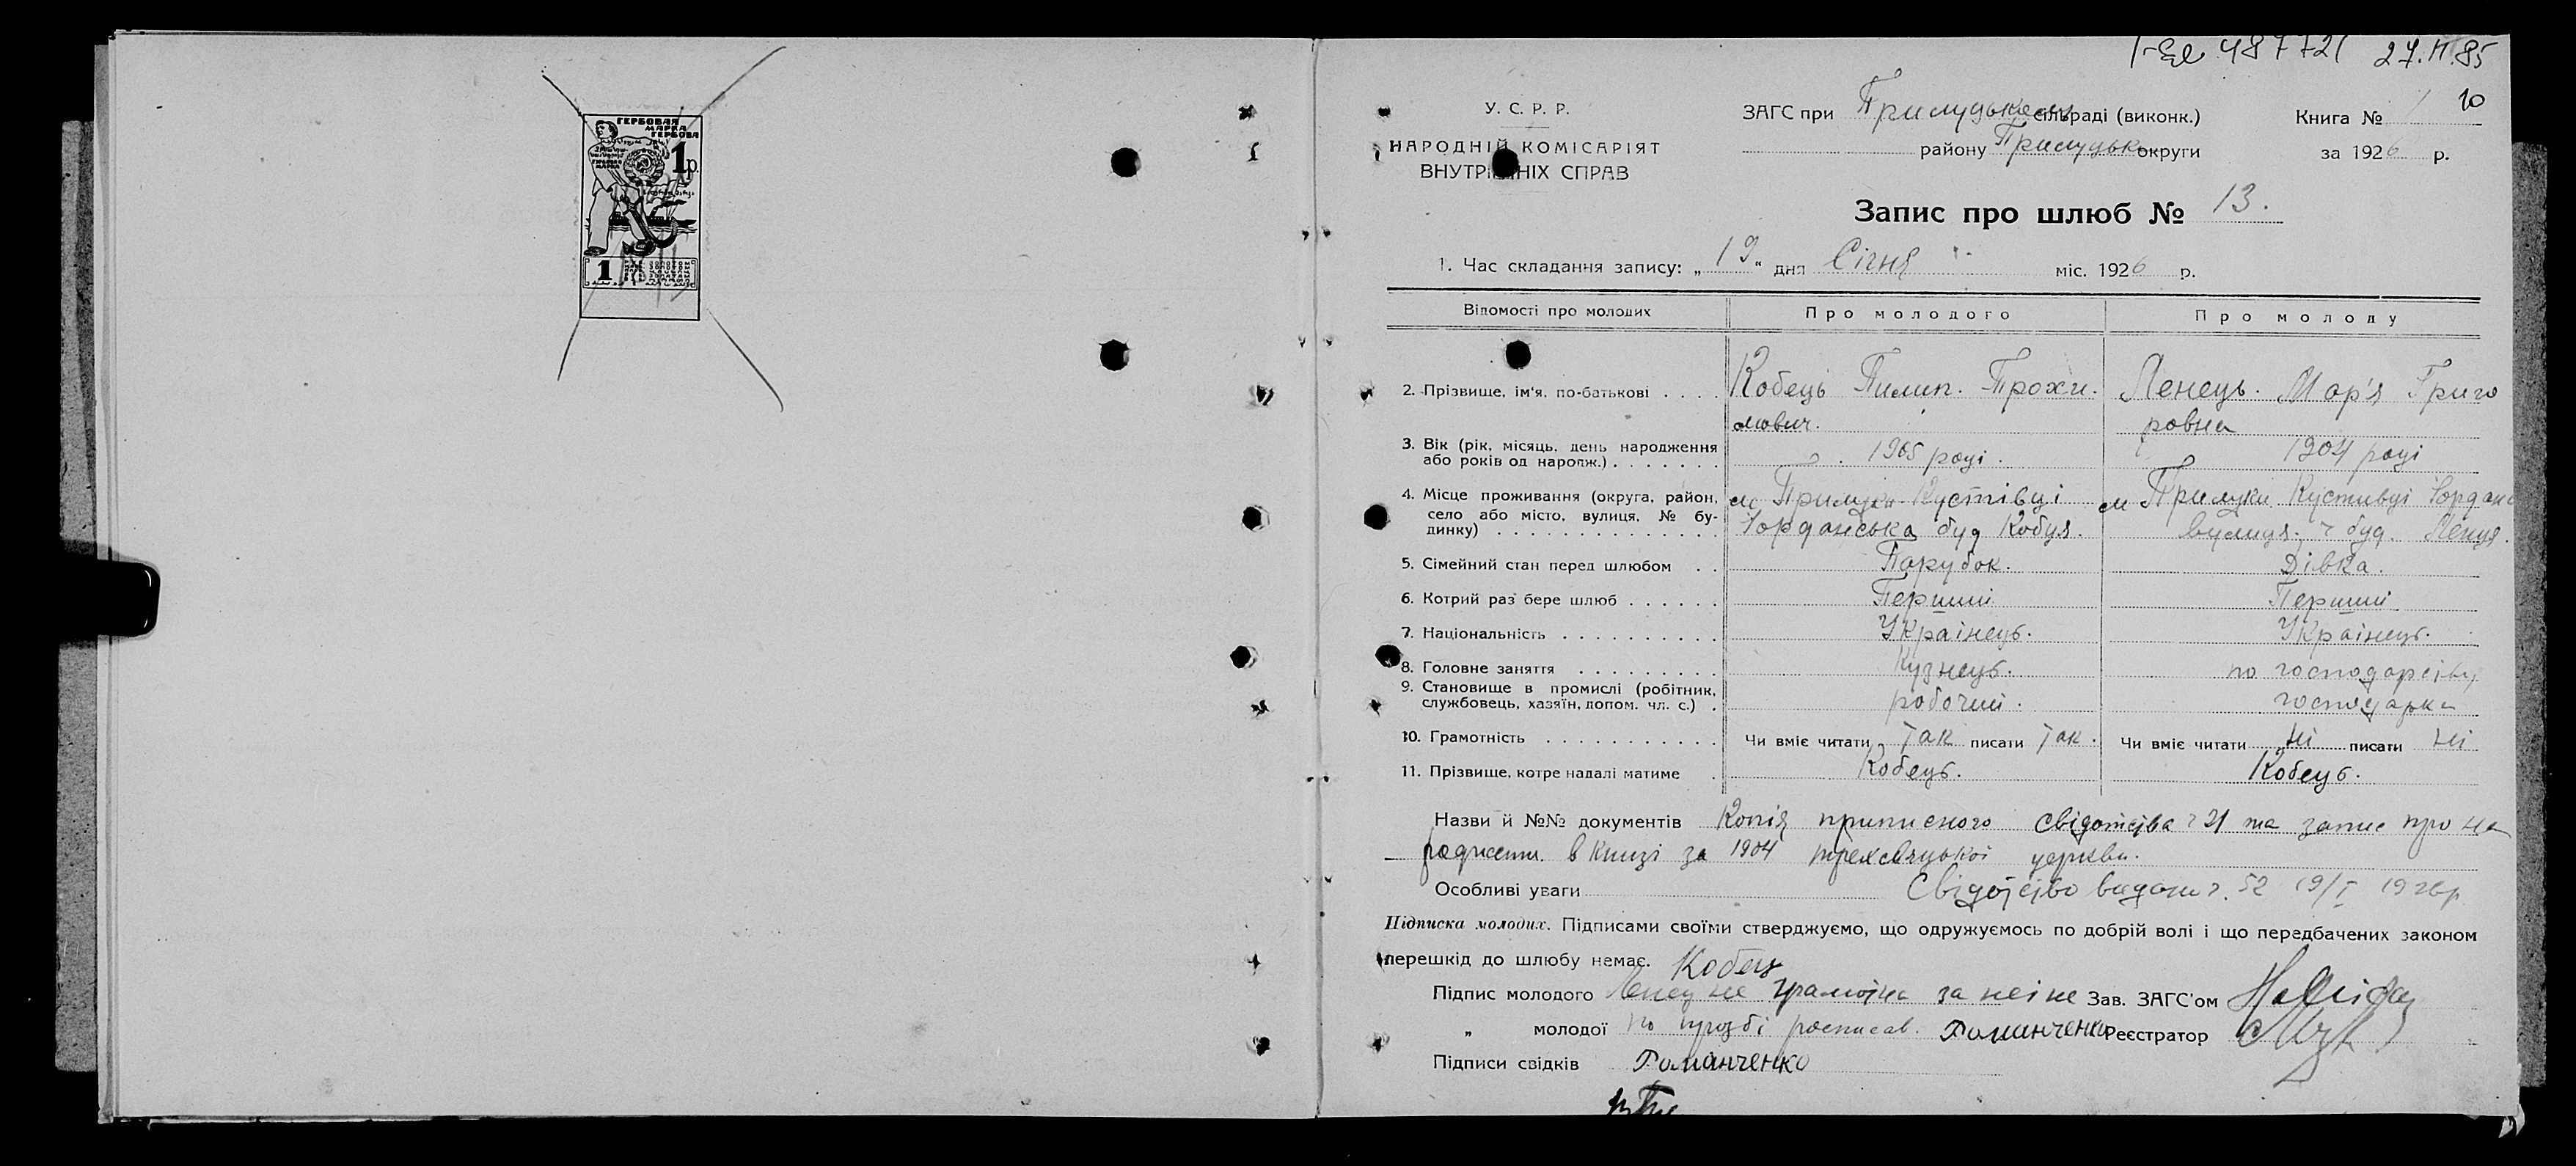 ГЕРБОВАЯ
МАРКА
ГЕРБОВА
1р.
1
487721 27.
У. С. Р. Р.
НАРОДНІЙ КОМІСАРІЯТ
ВНУТРІШНІХ СПРАВ
ЗАГС при сільраді (виконк.)
району Прилуцьк округи
Книга № 1 10
за 1926 р.
Запис про шлюб № 13.
1. Час складання запису: „19“ дня Січня міс. 1926 р.
Відомості про молодих Про молодого Про молоду
2. Прізвище, ім'я, по-батькові . . . . Кобець Пилип. Трохи- Ленець. Мар'я Григо
мович. ровна
3. Вік (рік, місяць, день народження
або років од народж.) . . . . . . . 1905 році. 1904 році
4. Місце проживання (округа, район, м Прилуки Кустівці м Прилуки Кустивці Іордан
село або місто, вулиця, № бу-
динку) . . . . . . . . . . . . . . Іорданська буд Кобця. вулиця. ч буд. Ленця.
5. Сімейний стан перед шлюбом . . Парубок. Дівка.
6. Котрий раз бере шлюб . . . . . . Перший Перший
7. Національність . . . . . . . . . . Українець. Українець.
8. Головне заняття . . . . . . . . . Кузнець. по господарству
9. Становище в промислі (робітник,
службовець, хазяїн, допом. чл. с.) . робочий. господарка
10. Грамотність . . . . . . . . . . . Чи вміє читати так писати так. Чи вміє читати ні писати ні
11. Прізвище, котре надалі матиме . Кобець. Кобець.
Назви й №№ документів Копія приписного свідотства ч 21 та запис про на
родження. в книзі за 1904 трехсвяцької церкви.
Особливі уваги Свідотство видано ч. 52 19/I 1926р
Підписка молодих. Підписами своїми стверджуємо, що одружуємось по добрій волі і що передбачених законом
перешкід до шлюбу немає. Кобец
Підпис молодого Ленец не грамотна за неї не Зав. ЗАГС'ом
„ молодої по прозбі росписав. Романченко Реєстратор
Підписи свідків Романченко